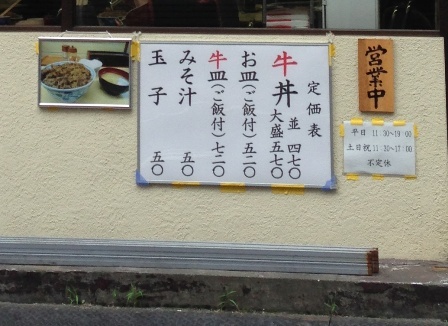 定価表
牛丼 並 四七〇
大盛 五七〇
お皿(ご飯付) 五二〇
牛皿(ご飯付) 七二〇
みそ汁 五〇
玉子 五〇
営業中
平日 11:30~19:00
土日祝 11:30~17:00
不定休